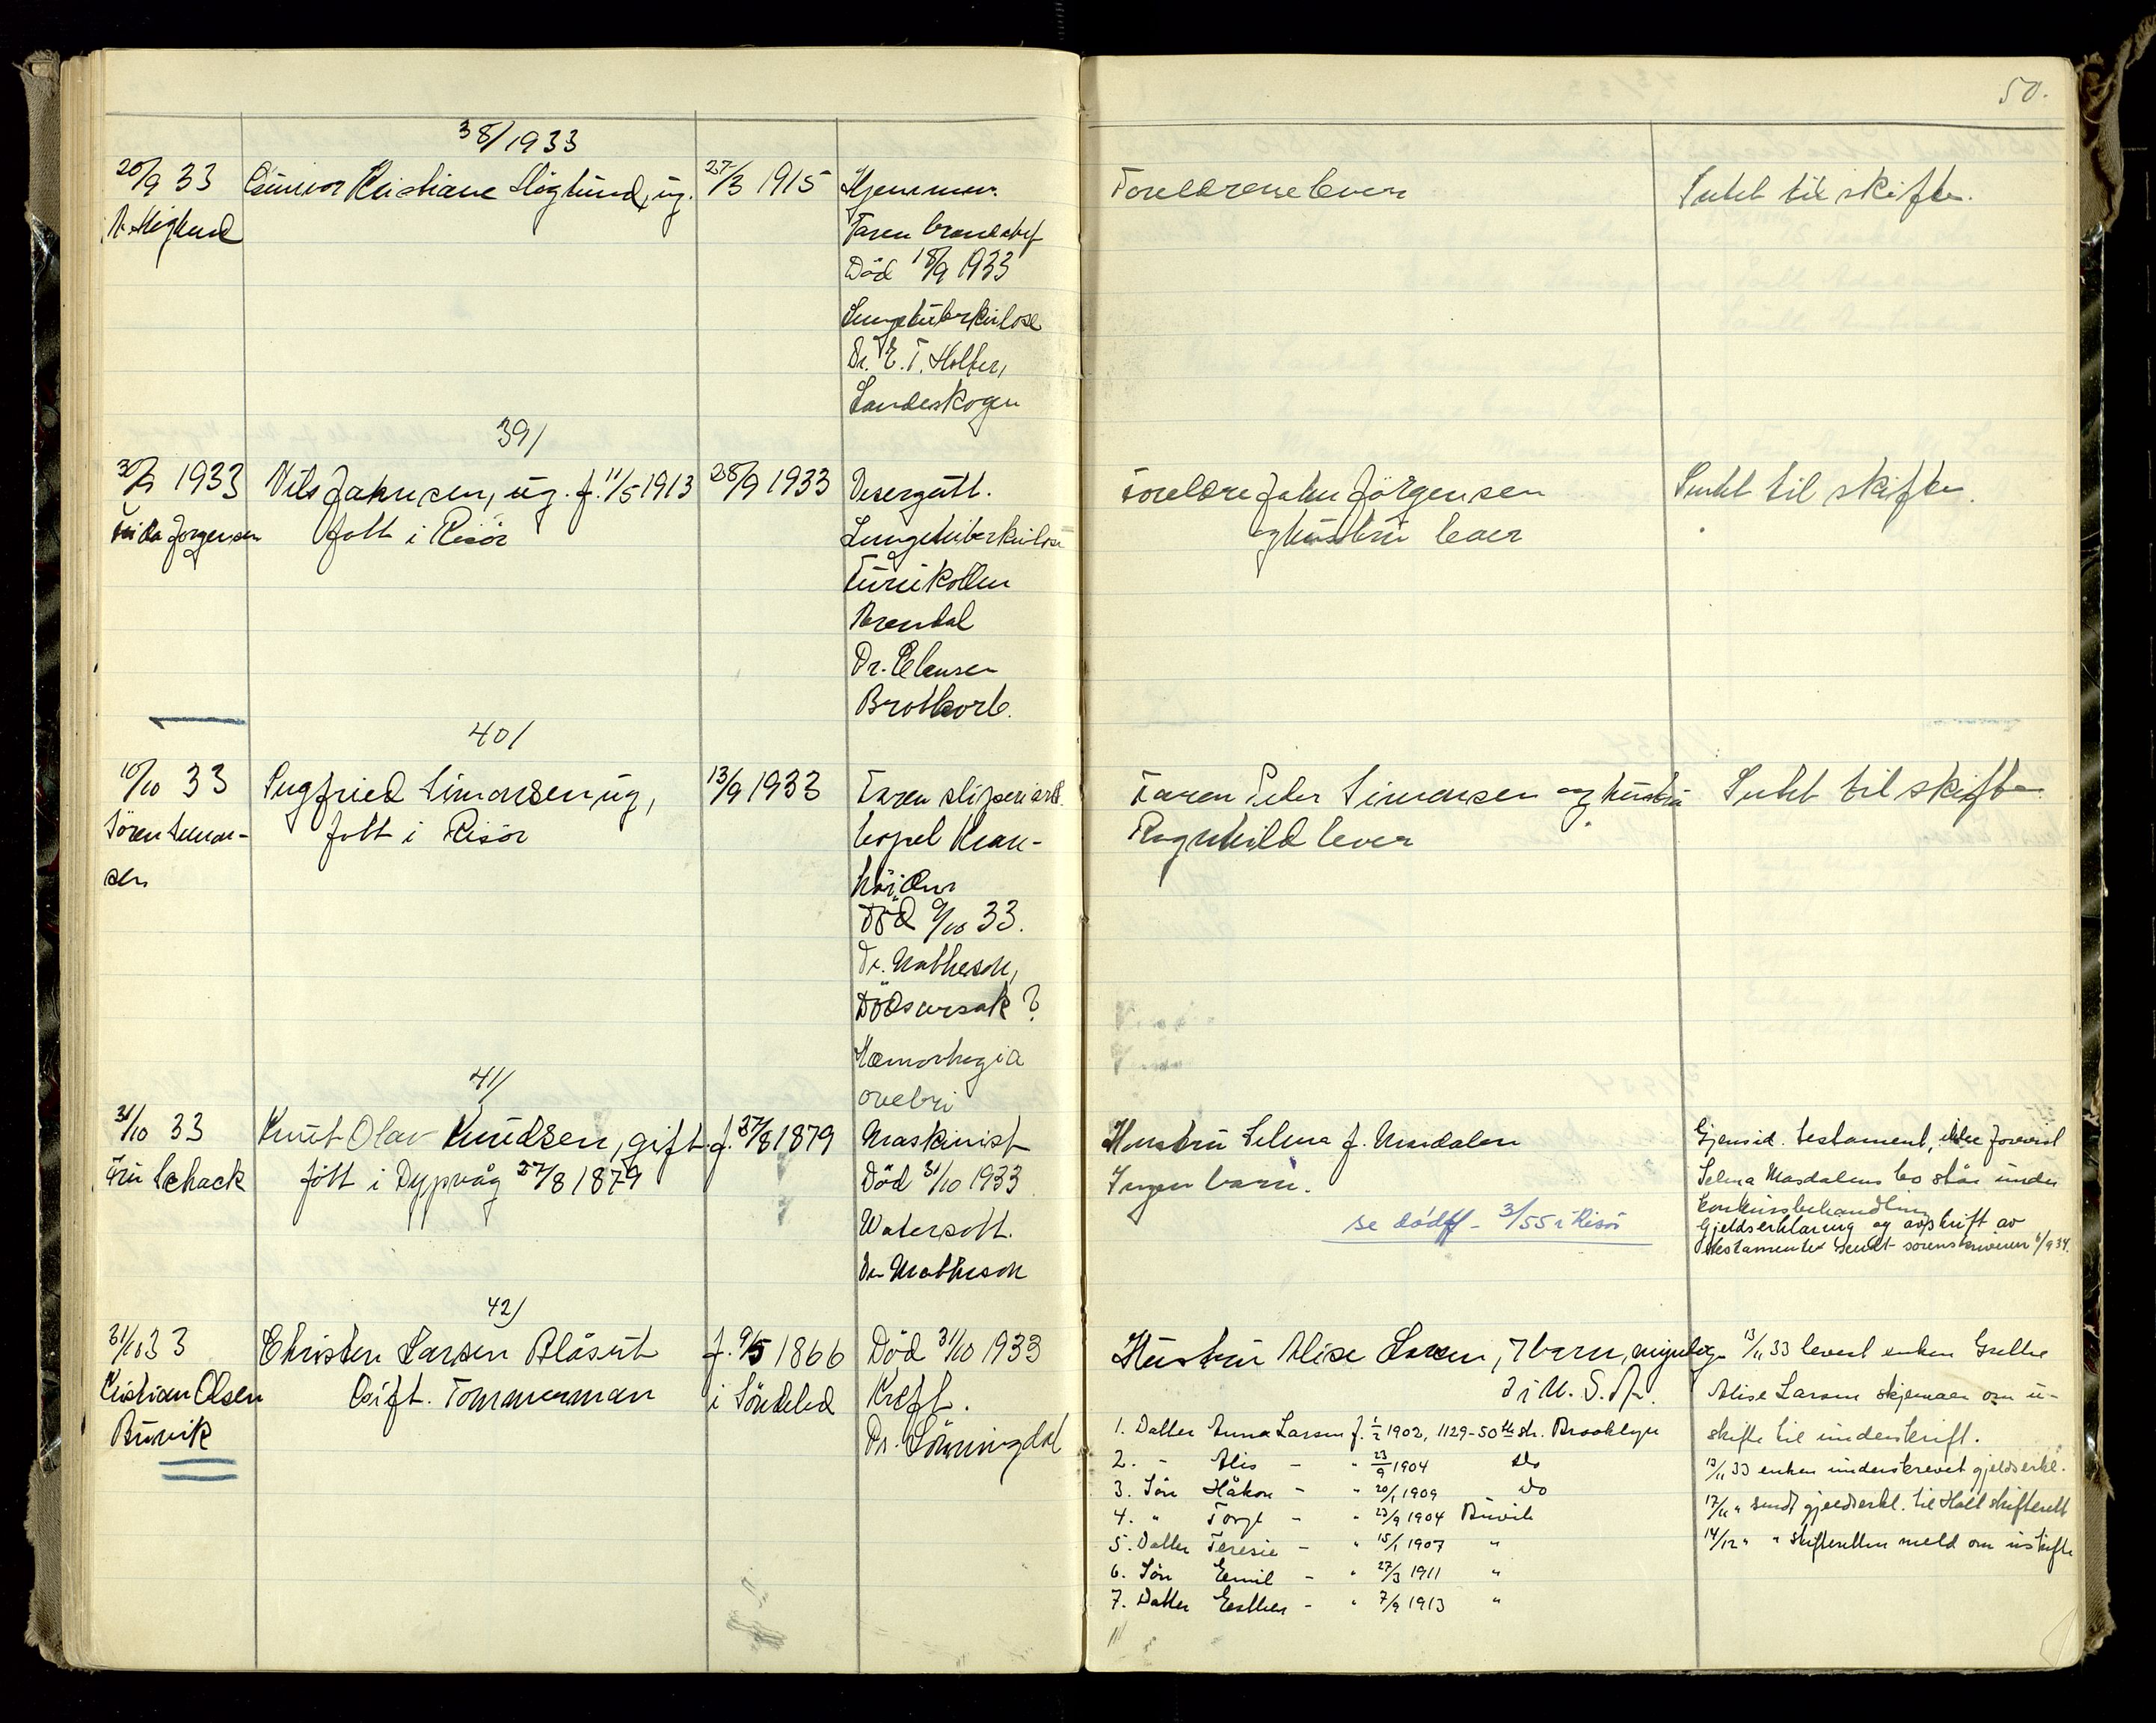 50.
38/1933
20/9 33 Gunvor Kristiane Höglund, ug. 27/3 1915 Hjemmev. Forældrene lever Intet til skifte.
A. Höglund Faren brandchef
Död 18/9 1933
Lungetuberkulose
Dr. E. T. Holter,
Landeskogen
39/
30/9 1933 Nils Jahnsen, ug. f. 11/5 1913 28/9 1933 Visergutt. Foreldre John Jörgensen Intet til skifte.
Frida Jörgensen fött i Risör Lungetuberkulose og hustru lever
Furukollen
Arendal
Dr. Clausen
Brotkorb.
40/
10/10 33 Sigfried Simonsen ug, 13/9 1933 Faren sliperiarb. Faren Peder Simonsen og hustru Intet til skifte
Sören Simon- fött i Risör Ragnhild lever
sen
Död 9/10 33.
Dr. Mathesen,
Dödsårsak?
41/
31/10 33 Knut Olav Knudsen, gift f. 27/8 1879 Maskinist Hustru Selma f. Masdalen Gjensid. testament, ikke forevist
Fru Schack fött i Dypvåg 27/8 1879 Död 31/10 1933 Ingen barn. Selma Masdalens bo står under
konkursbehandling
Watersott. se dödsf. 3/55 i Risör Gjeldserklæring og avskrift av
Dr Mathesen testamentet sendt sorenskriveren 6/9 34.
42/
31/10 33 Christen Larsen Blåsut f. 9/5 1866 Död 31/10 1933 Hustru Alise Larsen, 7 barn, myndige 13/11 33 levert enken Grethe
Kristian Olsen Gift. Tömmerman i Söndeled Kreft. 3 i U.S.A. Alise Larsen skjemaer om u-
Buvik Dr. Lönningdal skifte til underskrift.
1. Datter Anna Larsen f. 1/2 1902, 1129-50th str. Brooklyn
2. - Alis - " 23/9 1904 do 13/11 33 enken underskrevet gjeldserkl.
3. Sön Håkon - " 20/1 1909 do
4. " Torge - " 23/9 1904 Buvik 17/11 " sendt gjeldserkl. til Holt skifterett
5. Datter Teresie - " 15/1 1907 " 14/12 " " skifteretten meld om uskifte
6. Sön Emil - " 27/3 1911 "
7. Datter Esther - " 7/9 1913 "